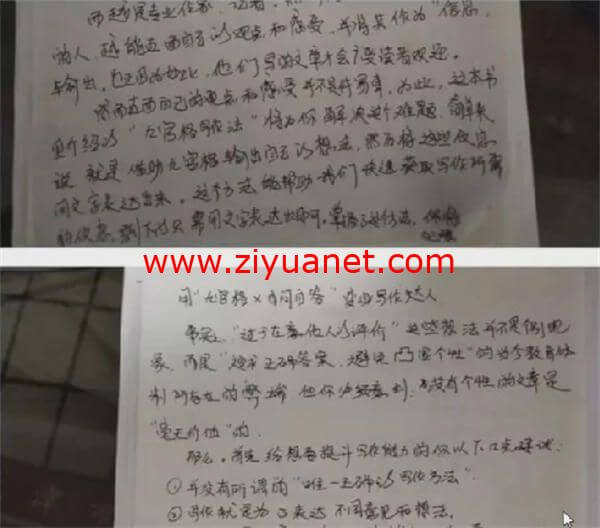 而越是专业作家、记者,
的人,越能直面自己的观点和感受,并将其作为“信息
与输出,也正因为如此,他们写的文章才会广受读者欢迎。
然而直面自己的观点和感受并不是件易事,为此,这本书
里介绍的“九宫格写作法”将为你解决这个难题,简单来
说,就是借助九宫格输出自己的想法,然后将这些信息
用文字表达出来。这个方法能帮助我们快速获取写作所需
的信息,剩下的只需用文字表达出即可。掌握了这个方法,你将
www.ziyuanet.com
用“九宫格×自问自答”变成写作达人
事实,“过于在意他人的评价”这些想法并不是个别现
象,而是“追求正确答案,避免凸显个性”的当今教育体
制所存在的弊端。但你必须意识到,没有个性的文章是
“毫无价值”的。
那么,首先给想要提升写作能力的你以下几点建议:
①并没有所谓的“唯一正确的写作方法”
②写作就是为了表达不同意见和想法。